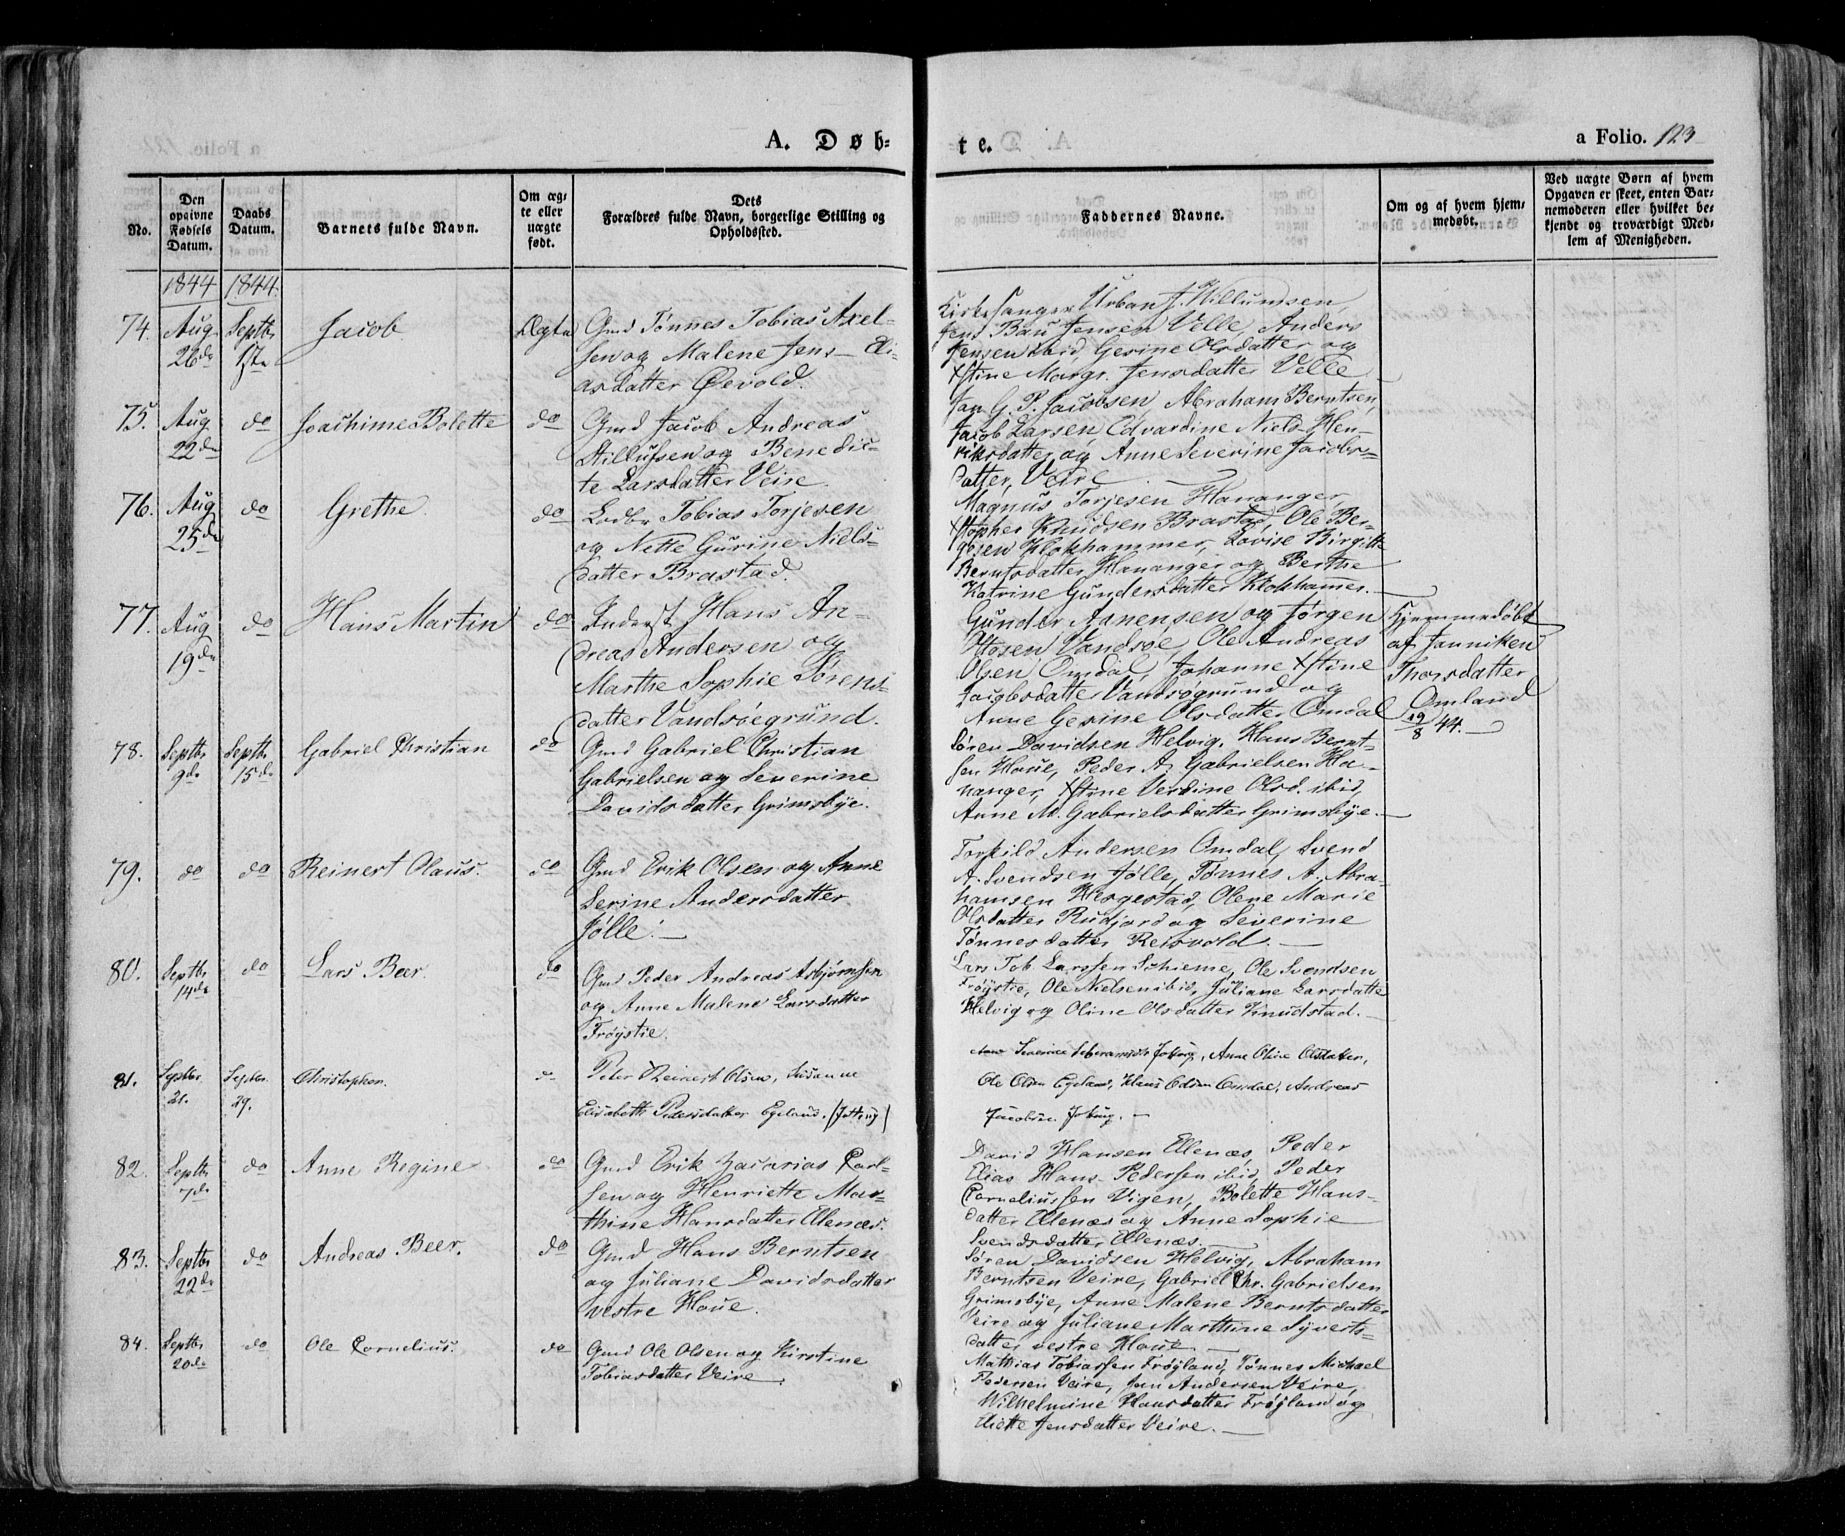 A. Døb-
te.
a Folio. 123
No.
Den opgivne Fødsels Datum.
Daabs Datum.
Barnets fulde Navn.
Om ægte eller uægte født.
Dets Forældres fulde Navn, borgerlige Stilling og Opholdssted.
Faddernes Navne.
Om og af hvem hjemmedøbt.
Ved uægte Børn af hvem Opgaven er skeet, enten Barnemoderen eller hvilket bekjendt og troværdigt Medlem af Menigheden.
1844 1844.
74. Aug 26de Septbr 1ste Jacob Ægte
Gmd Tønnes Tobias Axel-
sen og Malene Jens Eli-
asdatter Øevold.
Kirkesanger Urban J. Willumsen
Jens Bau Jensen Velle, Anders
Jensen ibid Gesine Olsdatter og
Xstine Margr. Jensdatter Velle
75. Aug 22de do Joachime Bolette do
Gmd Jacob Andreas
Stillufsen og Benedic-
te Larsdatter Veire.
Jan G. P. Jacobsen, Abraham Berntsen,
Jacob Larsen, Edvardine Niels Hen-
riksdatter og Anne Severine Jacobs-
datter, Veire
76. Aug 25de do Grethe. do
Ledbr Tobias Torjesen
og Nette Gurine Niels-
datter Brastad.
Magnus Torjesen Hananger
Xstopher Knudsen Brastad, Ole Ber-
gesen Klokhammer, Lovise Birgitte
Berntsdatter Hananger og Berthe
Katrine Gundersdatter Klokhamer.
77. Aug 19de do Hans Martin do
Inderst Hans An-
dreas Andersen og
Marthe Sophie Sørens-
datter Vandsøegrund.
Gunder Aanensen og Jørgen
Ottosen Vandsøe, Ole Andreas
Olsen Omdal, Johanne Xstine
Jacobsdatter Vandsøgrund og
Anne Gesine Olsdatter Omdal
Hjemmedøbt
af Janniken
Thorsdatter
Omland
19/8 44.
78. Septbr 9de Septbr 15de Gabriel Christian do
Gmd Gabriel Christian
Gabrielsen og Severine
Davidsdatter Grimsbye.
Søren Davidsen Helvig, Hans Bernt-
sen Houe, Peder A. Gabrielsen Ha-
nanger, Xstine Verdine Olsd. ibid,
Anne M. Gabrielsdatter Grimsbye.
79. do do Reinert Olaus. do
Gmd Erik Olsen og Anne
Serine Andersdatter
Jølle.
Torkild Andersen Omdal, Svend
A. Svendsen Jølle, Tønnes A. Abra-
hamsen Hergestad, Olene Marie
Olsdatter Rudjord og Severine
Tønnesdatter Reisvold.
80. Septbr 14de do Lars Beer. do
Gmd Peder Andreas Asbjørnsen
og Anne Malene Larsdatter
Frøystie.
Lars Tob. Larssen Schieme, Ole Svendsen
Frøystie, Ole Nielsen ibid, Juliane Larsdatter
Helvig og Oline Olsdatter Knudstad.
81. Septbr 21. Septbr 29. Christopher. do
Peter Reinert Olsen, Susanne
Elisabeth Pedersdatter Egeland.
Severine, Anne Oline Olsdatter,
Ole Olsen Egeland, Hans Olsen Omdal, Andreas
Jacobsen
82. Septbr 7de do Anne Regine do
Gmd Erik Zacarias Carl-
sen og Henriette Mar-
thine Hansdatter Ellenæs.
David Hansen Ellenæs, Peder
Elias Hans Pedersen ibid, Peder
Corneliussen Vigen, Bolette Hans-
datter Ellenæs og Anne Sophie
Svendsdatter Ellenæs.
83. Septbr 22de do Andreas Beer. do
Gmd Hans Berntsen
og Juliane Davidsdatter
vestre Houe.
Søren Davidsen Helvig, Abraham
Berntsen Veire, Gabriel Chr. Gabrielsen
Grimsbye, Anne Malene Berntsdatter
Veire og Juliane Marthine Syverts-
datter vestre Houe
84. Septbr 20de do Ole Cornelius. do
Gmd Ole Olsen og Kirstine
Tobiasdatter Veire.
Mathias Tobiassen Frøyland, Tønnes Michael
Pedersen Veire, Jan Andersen Veire,
Wilhelmine Hansdatter Frøyland og
Jensdatter Veire.